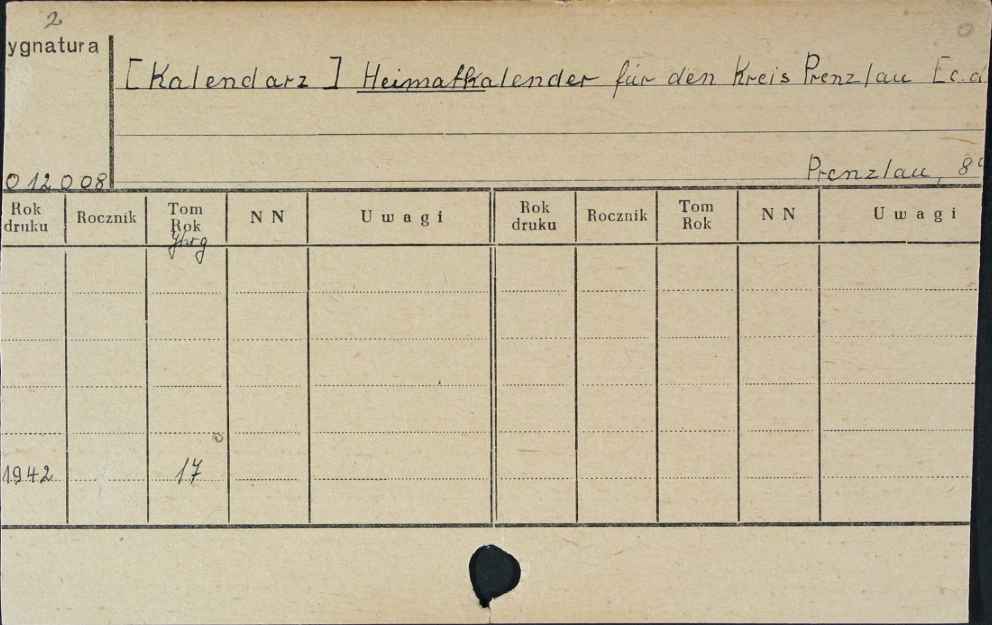 2
ygnatura
[Kalendarz] Heimatkalender für den Kreis Prenzlau
012008
Prenzlau, 8°
Rok druku Rocznik Tom Rok NN Uwagi Rok druku Rocznik Tom Rok NN Uwagi
Jhrg
1942 17